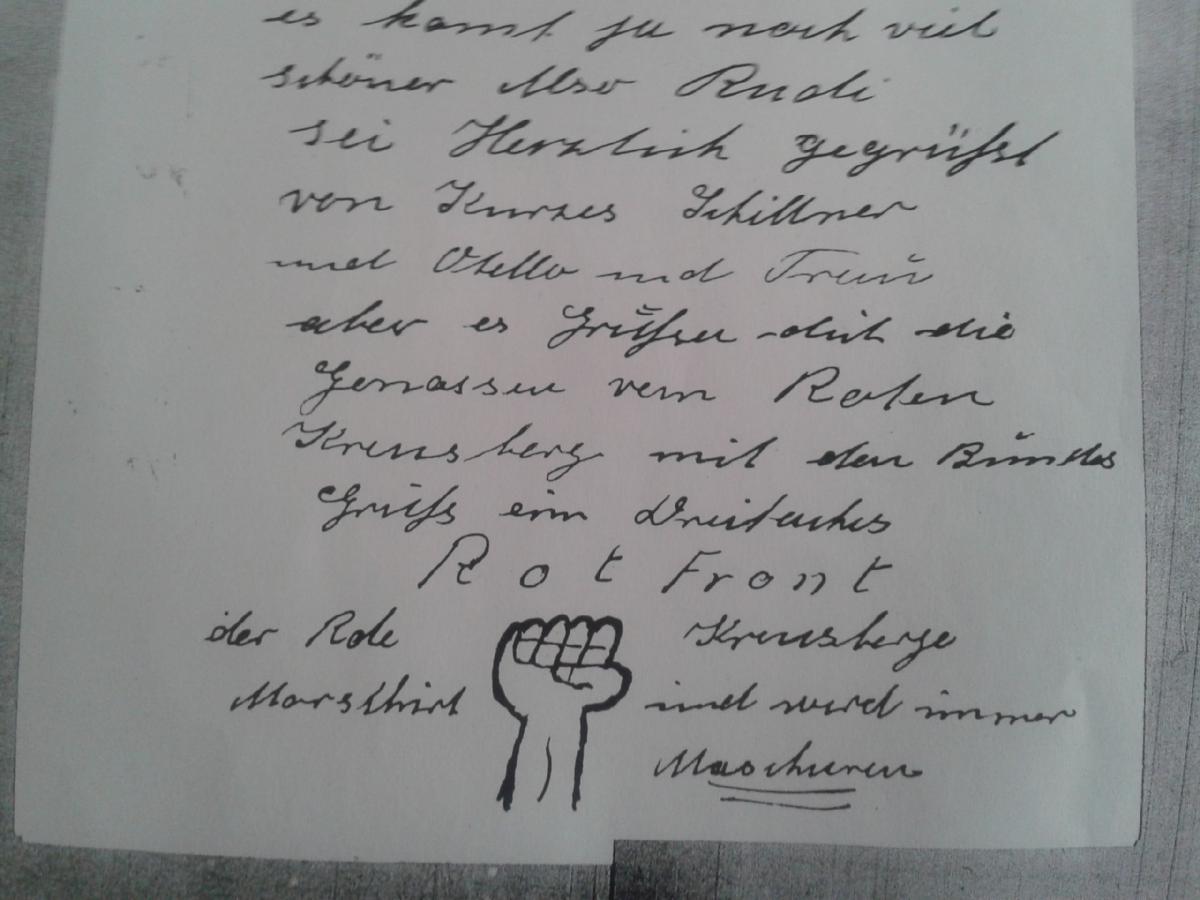 es komt ja noch viel
schöner Also Rudi
sei Herzlich gegrüßt
von Kurzes Schillner
und Otello und
aber es Grüßen dich die
Genossen vom Roten
Kreuzberg mit den Bundes
Gruß ein Dreifaches
Rot Front
der Rote Kreuzberge
Marschirt und wird immer
Maschieren